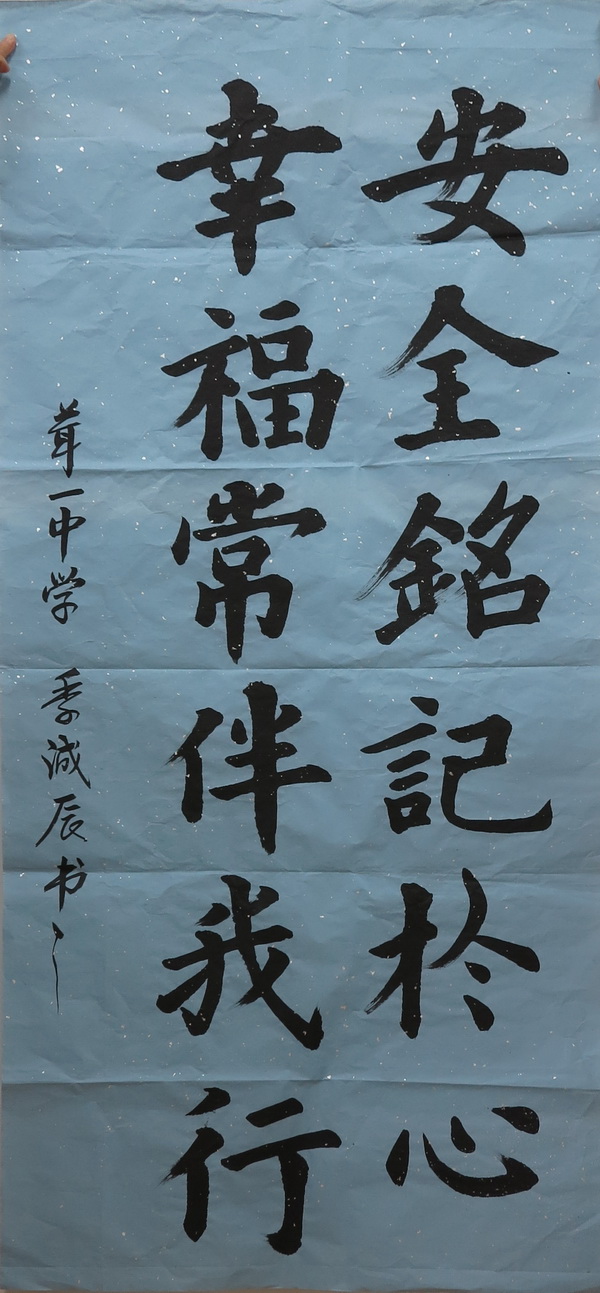 安全銘記於心
幸福常伴我行
茸一中学 季诚辰书